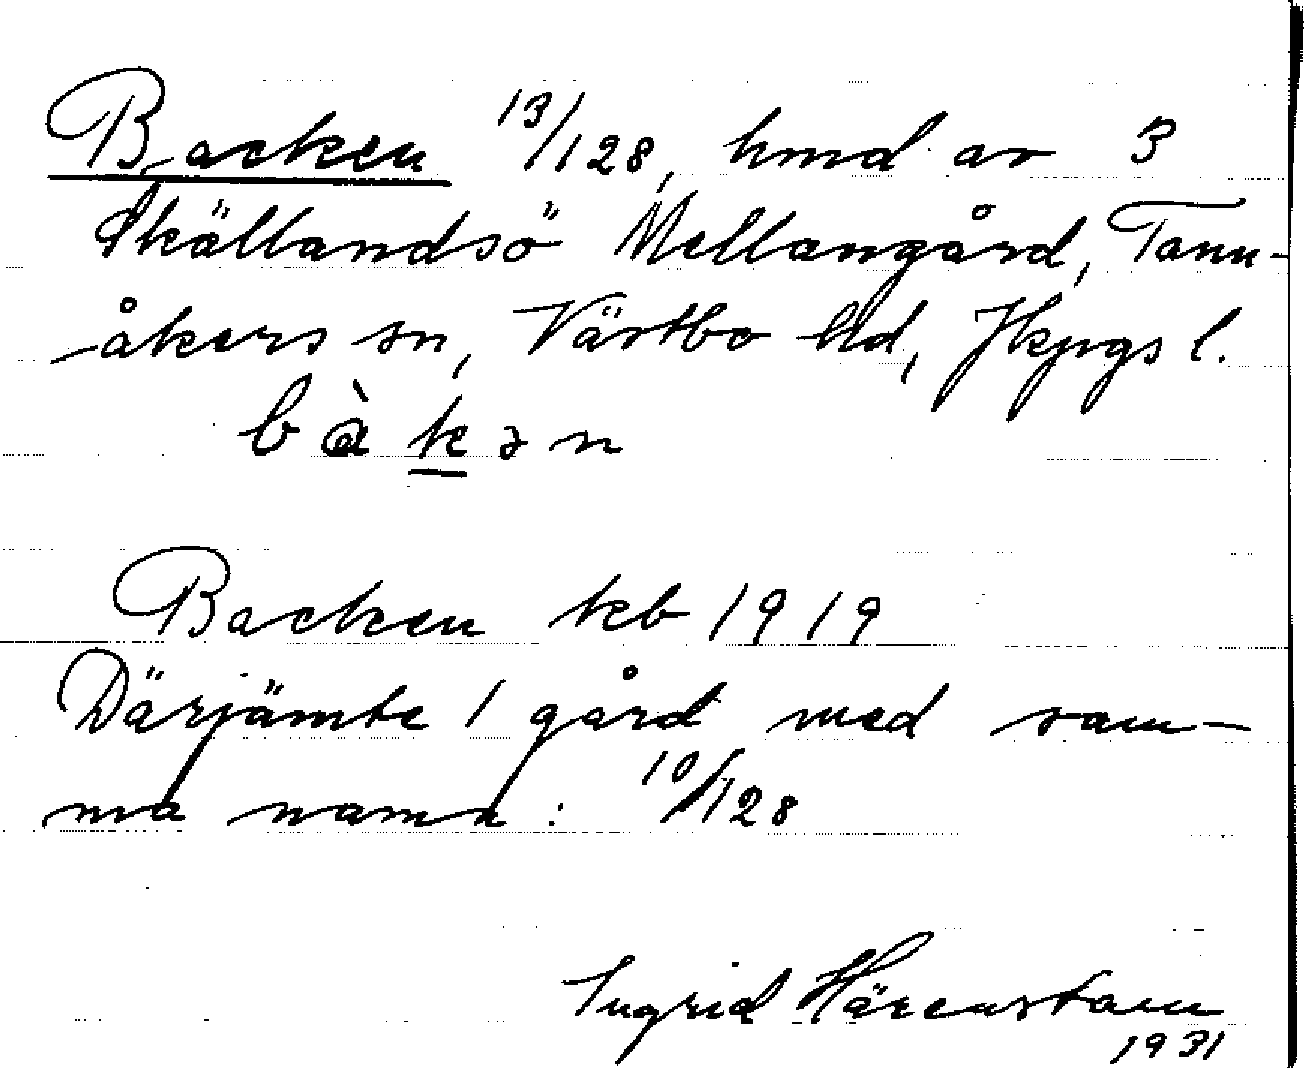 Backen 13/128, hmd av 3
Skällandsö Mellangård, Tann-
åkers sn, Västbo hd, Jkpgs l.
bàkən
Backen kb 1919
Därjämte 1 gård med sam-
ma namn: 10/128
Ingrid Härenstam
1931